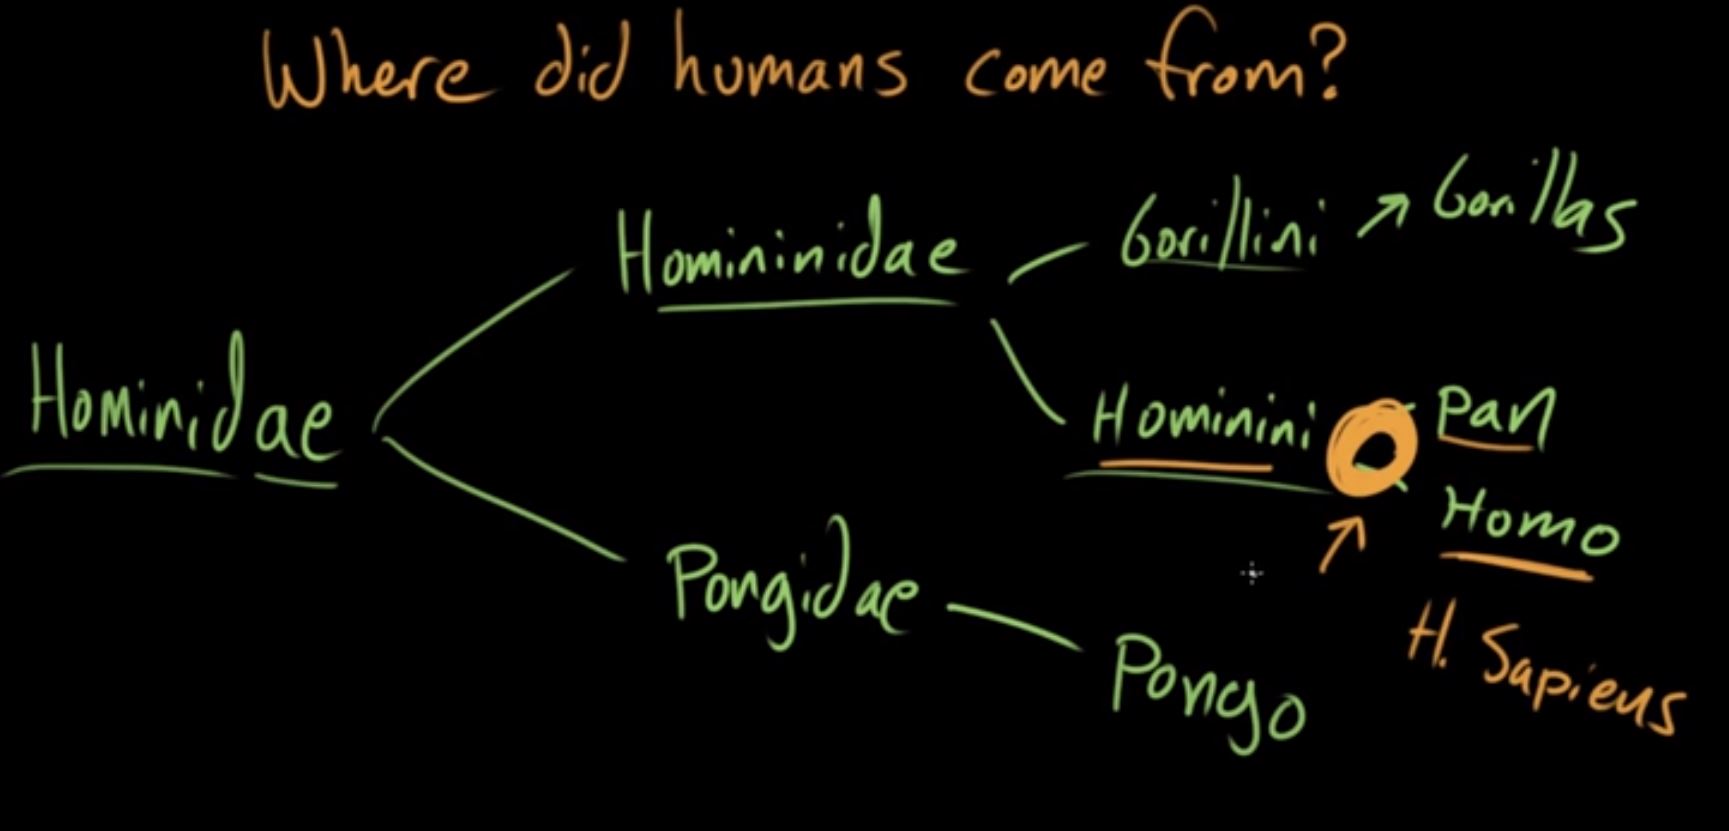 Where did humans come from?
Homininidae
Gorillini
Gorillas
Hominidae
Hominini
Pan
Homo
H. Sapiens
Pongidae
Pongo